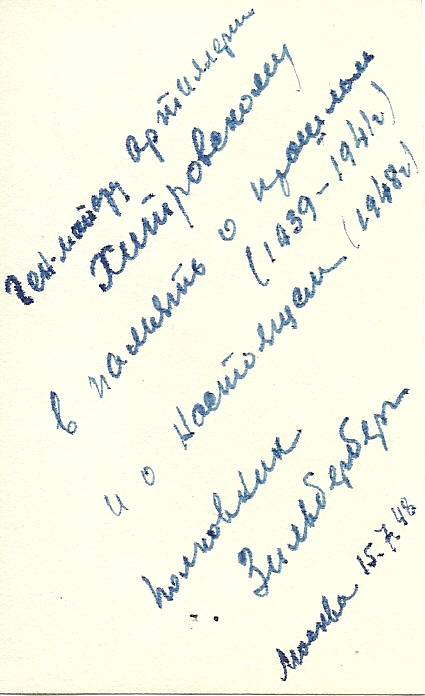 Ген-майору артиллерии
Хитровскому
в память о прошлом
(1939-1941г)
и о настоящем (1948г)
полковник
Зильберберг
Москва 15.7.48